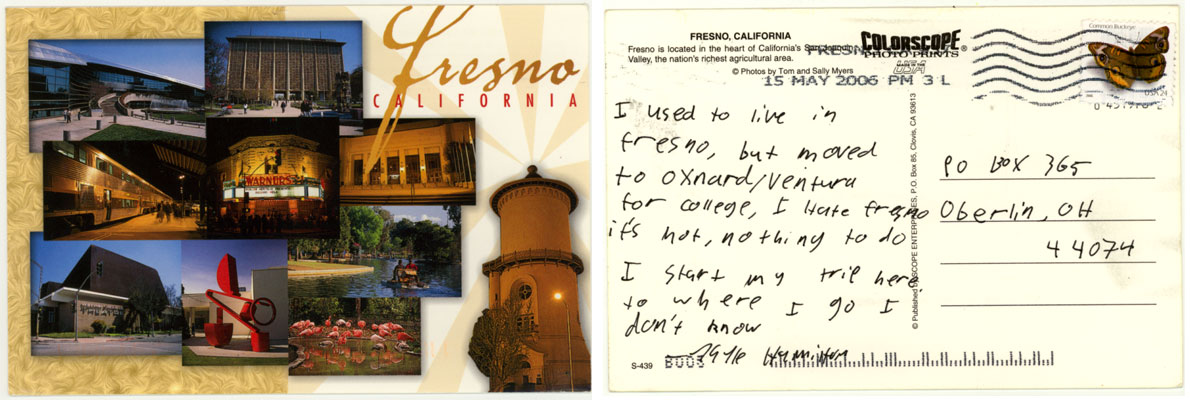 Fresno
CALIFORNIA
WARNORS
FRESNO, CALIFORNIA
Fresno is located in the heart of California's San Joaquin
Valley, the nation's richest agricultural area.
© Photos by Tom and Sally Myers
COLORSCOPE®
PHOTO PRINTS
MADE IN THE
USA
FRESNO
15 MAY 2006 PM 3 L
Common Buckeye
USA 24
I used to live in
fresno, but moved
to oxnard/ventura
for college, I Hate fresno
it's hot, nothing to do
I start my trip here,
to where I go I
don't know
Hamilton
PO BOX 365
Oberlin, OH
44074
© Published by COLORSCOPE ENTERPRISES, P.O. Box 85, Clovis, CA 93613
S-439